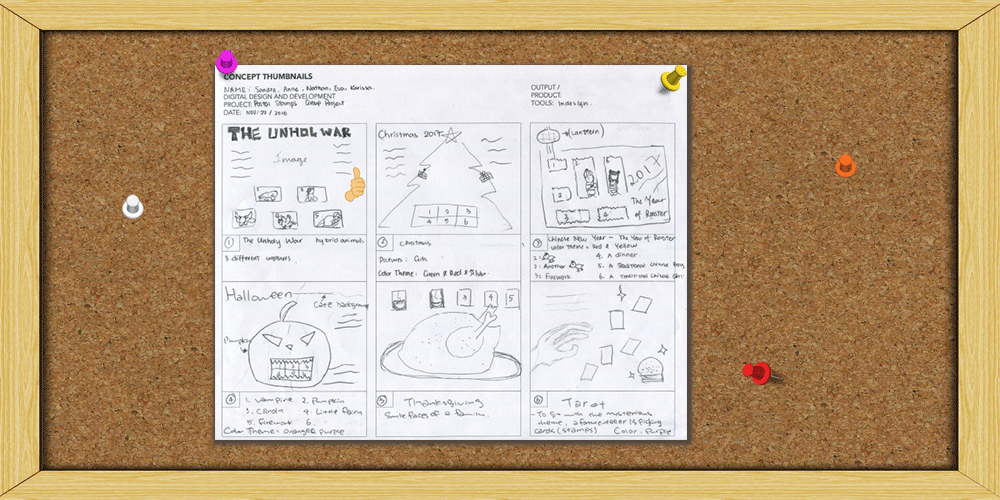 CONCEPT THUMBNAILS
NAME: Sandra, Anne, Nathan, Eva, Karissa.
DIGITAL DESIGN AND DEVELOPMENT
PROJECT: Postal Stamps Group Project
DATE: 2018
OUTPUT /
PRODUCT:
TOOLS: Indesign.
THE UNHOL WAR
Image
1 The Unholy War hybrid animal.
3 different
Christmas 2017
1 2 3
4 5 6
2 Christmas
Pictures: Gifts
Color Theme: Green & Red & Silver
(Lantern)
1
2
3
4
2017
The Year
of Rooster
3 Chinese New Year - The Year of Rooster
Color Theme = Red & Yellow
1:
2: Another
3: Firework
4. A dinner
5. A Traditional Chinese Boy
6. A Traditional Chinese Girl
Halloween
Cave background
Pumpkin
4 1. Vampire 2. Pumpkin
3. Candy 4. Little fairy
5. Firework 6.
Color Theme: Orange & Purple
3 4 5
5 Thanksgiving
Smile faces of a family.
6 Tarot
- To go with the mysterious
theme, a fortune teller is picking
cards (stamps) Color: Purple